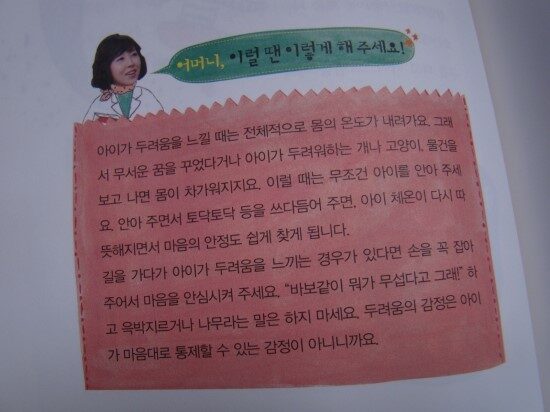 어머니, 이럴 땐 이렇게 해 주세요!
아이가 두려움을 느낄 때는 전체적으로 몸의 온도가 내려가요. 그래
서 무서운 꿈을 꾸었다거나 아이가 두려워하는 개나 고양이, 물건을
보고 나면 몸이 차가워지지요. 이럴 때는 무조건 아이를 안아 주세
요. 안아 주면서 토닥토닥 등을 쓰다듬어 주면, 아이 체온이 다시 따
뜻해지면서 마음의 안정도 쉽게 찾게 됩니다.
길을 가다가 아이가 두려움을 느끼는 경우가 있다면 손을 꼭 잡아
주어서 마음을 안심시켜 주세요. “바보같이 뭐가 무섭다고 그래!” 하
고 윽박지르거나 나무라는 말은 하지 마세요. 두려움의 감정은 아이
가 마음대로 통제할 수 있는 감정이 아니니까요.